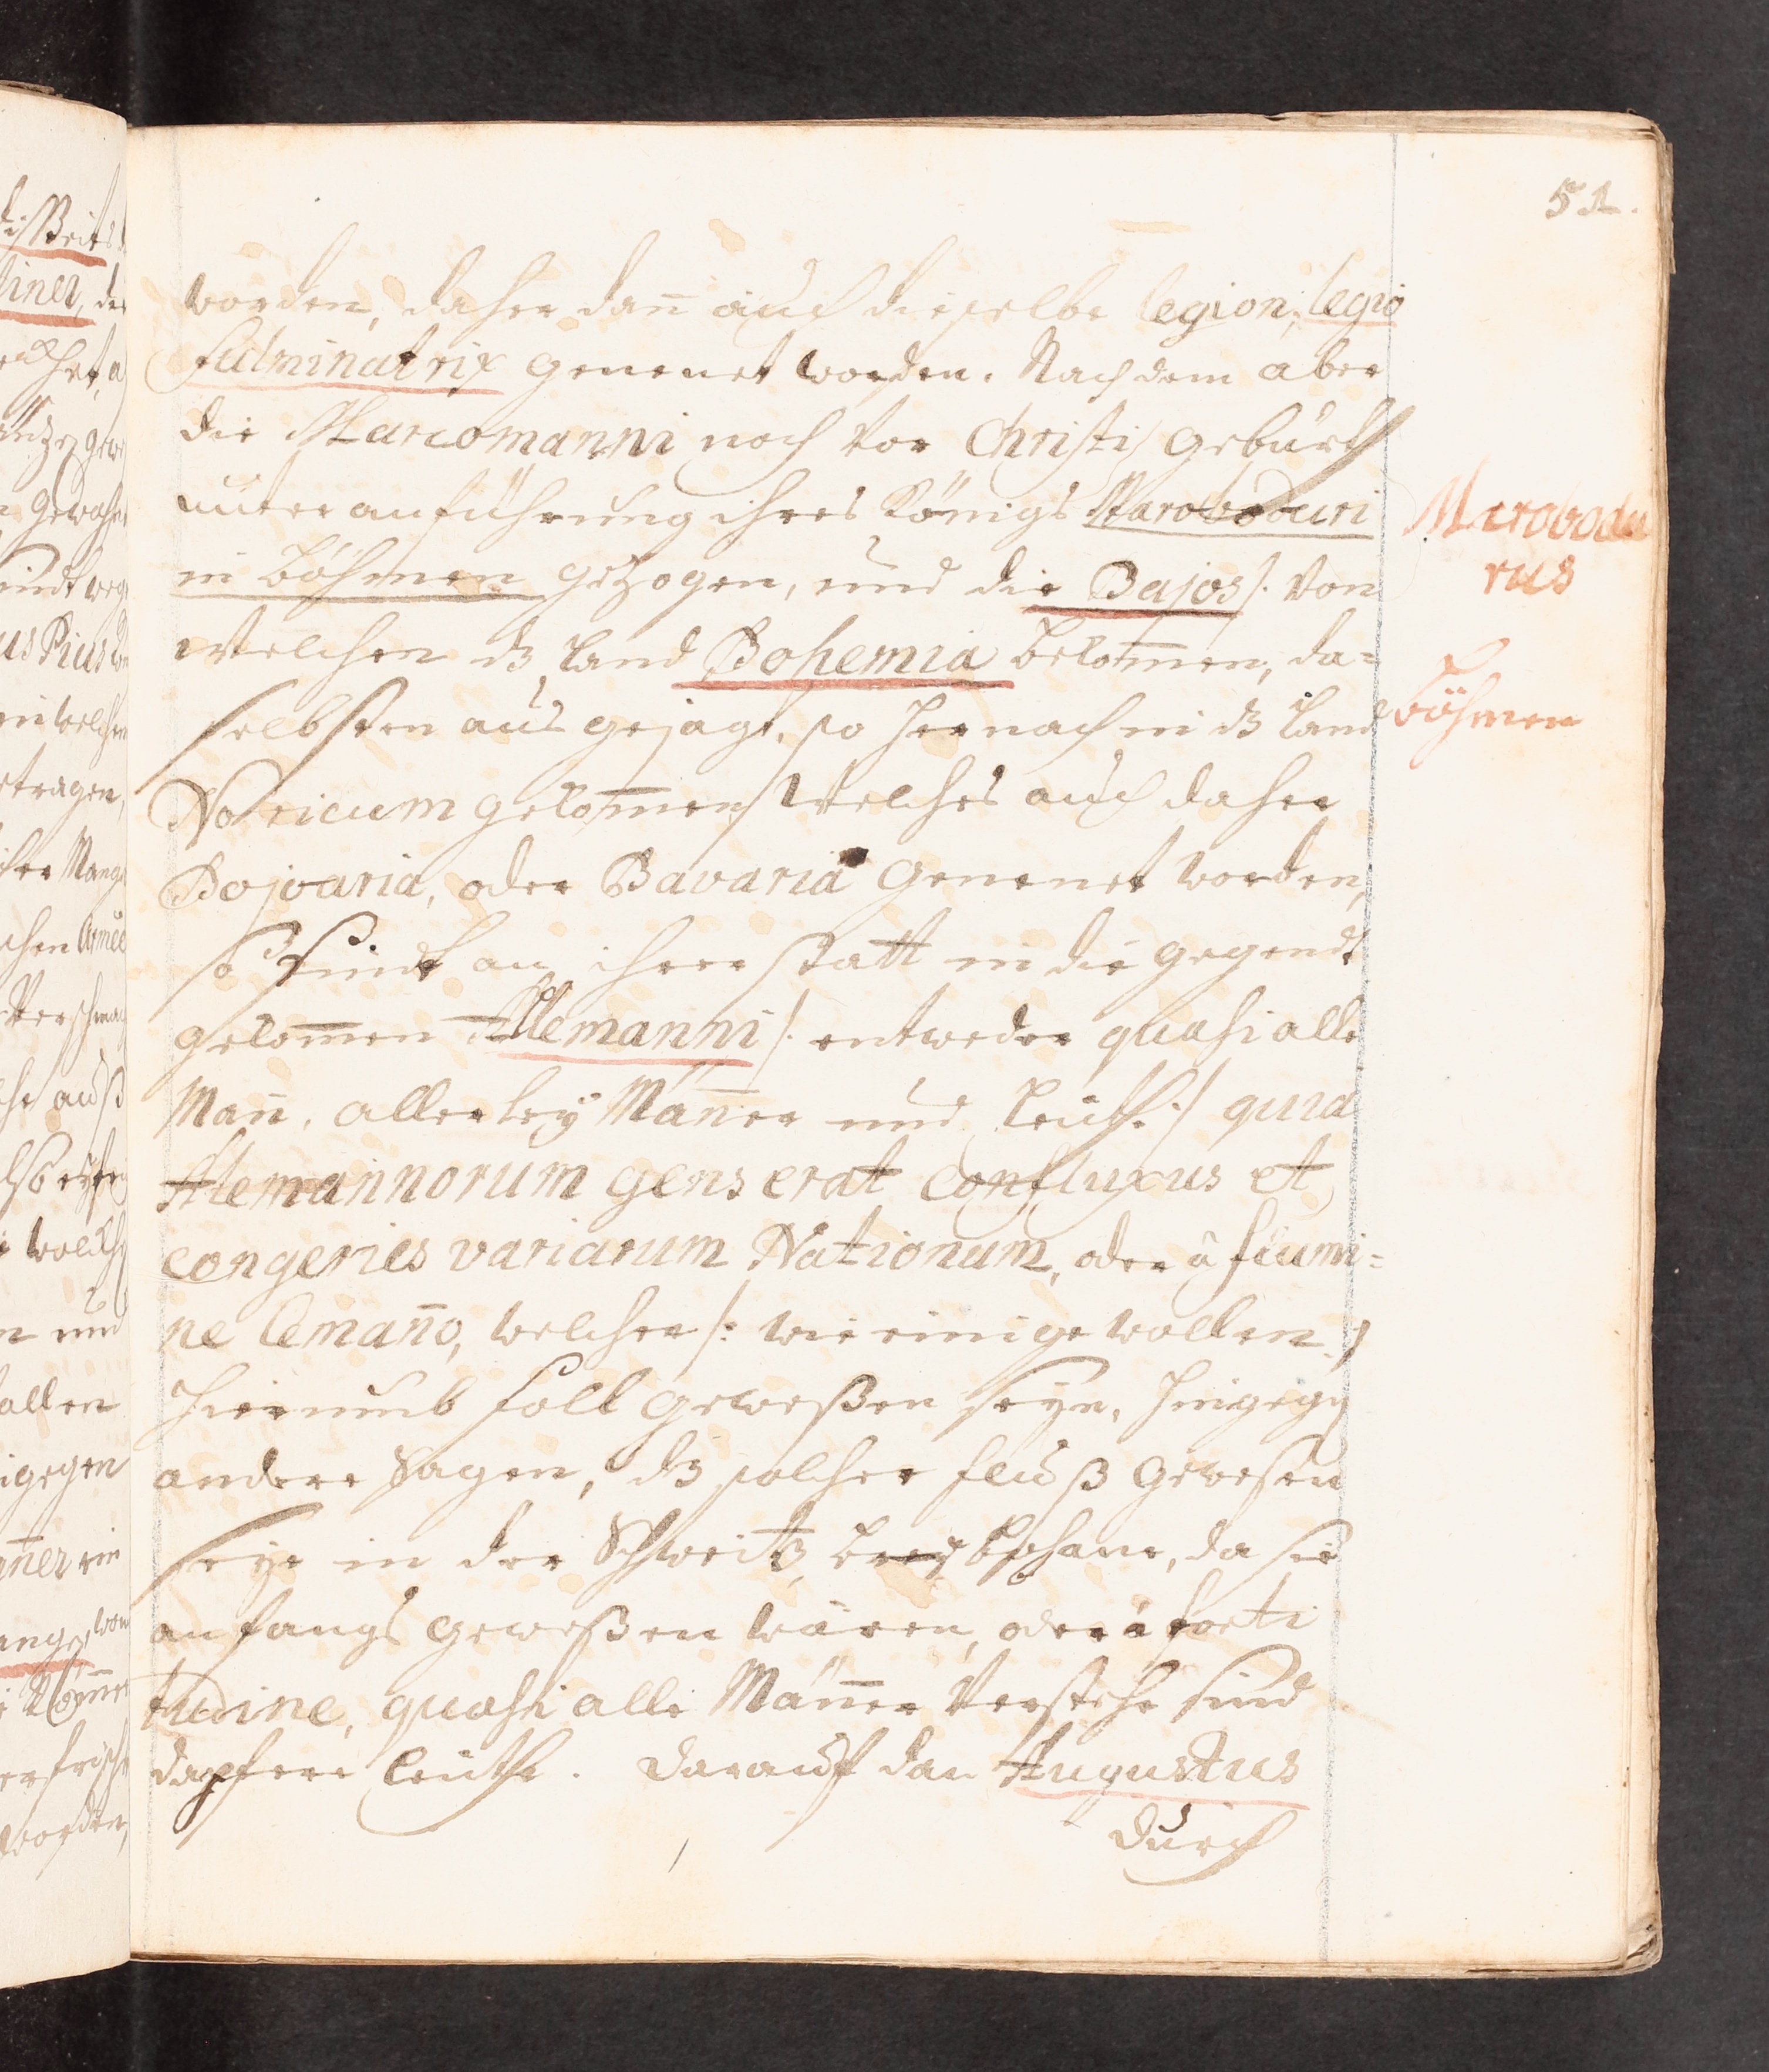 51.
worden, daher dañ auch dieselbe legion, legio
fulminatrix genenet worden. Nach dem aber
die Marcomanni noch vor Christi geburth
unter anführung ihres Königs Maroboduri
in Böhmen gezogen, und die Bajos /. von
welchen dz Land Bohemia bekom̄en, da=
selbsten aus gejagt, so hernach in dz Land
Noricum gekom̄en / welches auch daher
Bojoaria, oder Bavaria genenet worden,
so sindt an ihrer statt in die gegendt
gekom̄en Allemanni /. entweder quasi alle
Mañ, allerley Mäñer und Leuth. / quia
Alemannorum gens erat confluxus et
congeries variarum Nationum, oder à flumi=
ne Lemaño, welcher /: wie einige wollen /
hierumb soll geweßen seyn, hingegen
andere sagen, dz solcher fluß gewesen
seye in der Schweitz, da sie
anfangs geweßen wären, oder à forti
tudine, quasi alle Mäñer verstehe sind
dapfere Leuthe. Darauf dan Augustus
durch
Marobodu
rus
Böhmen